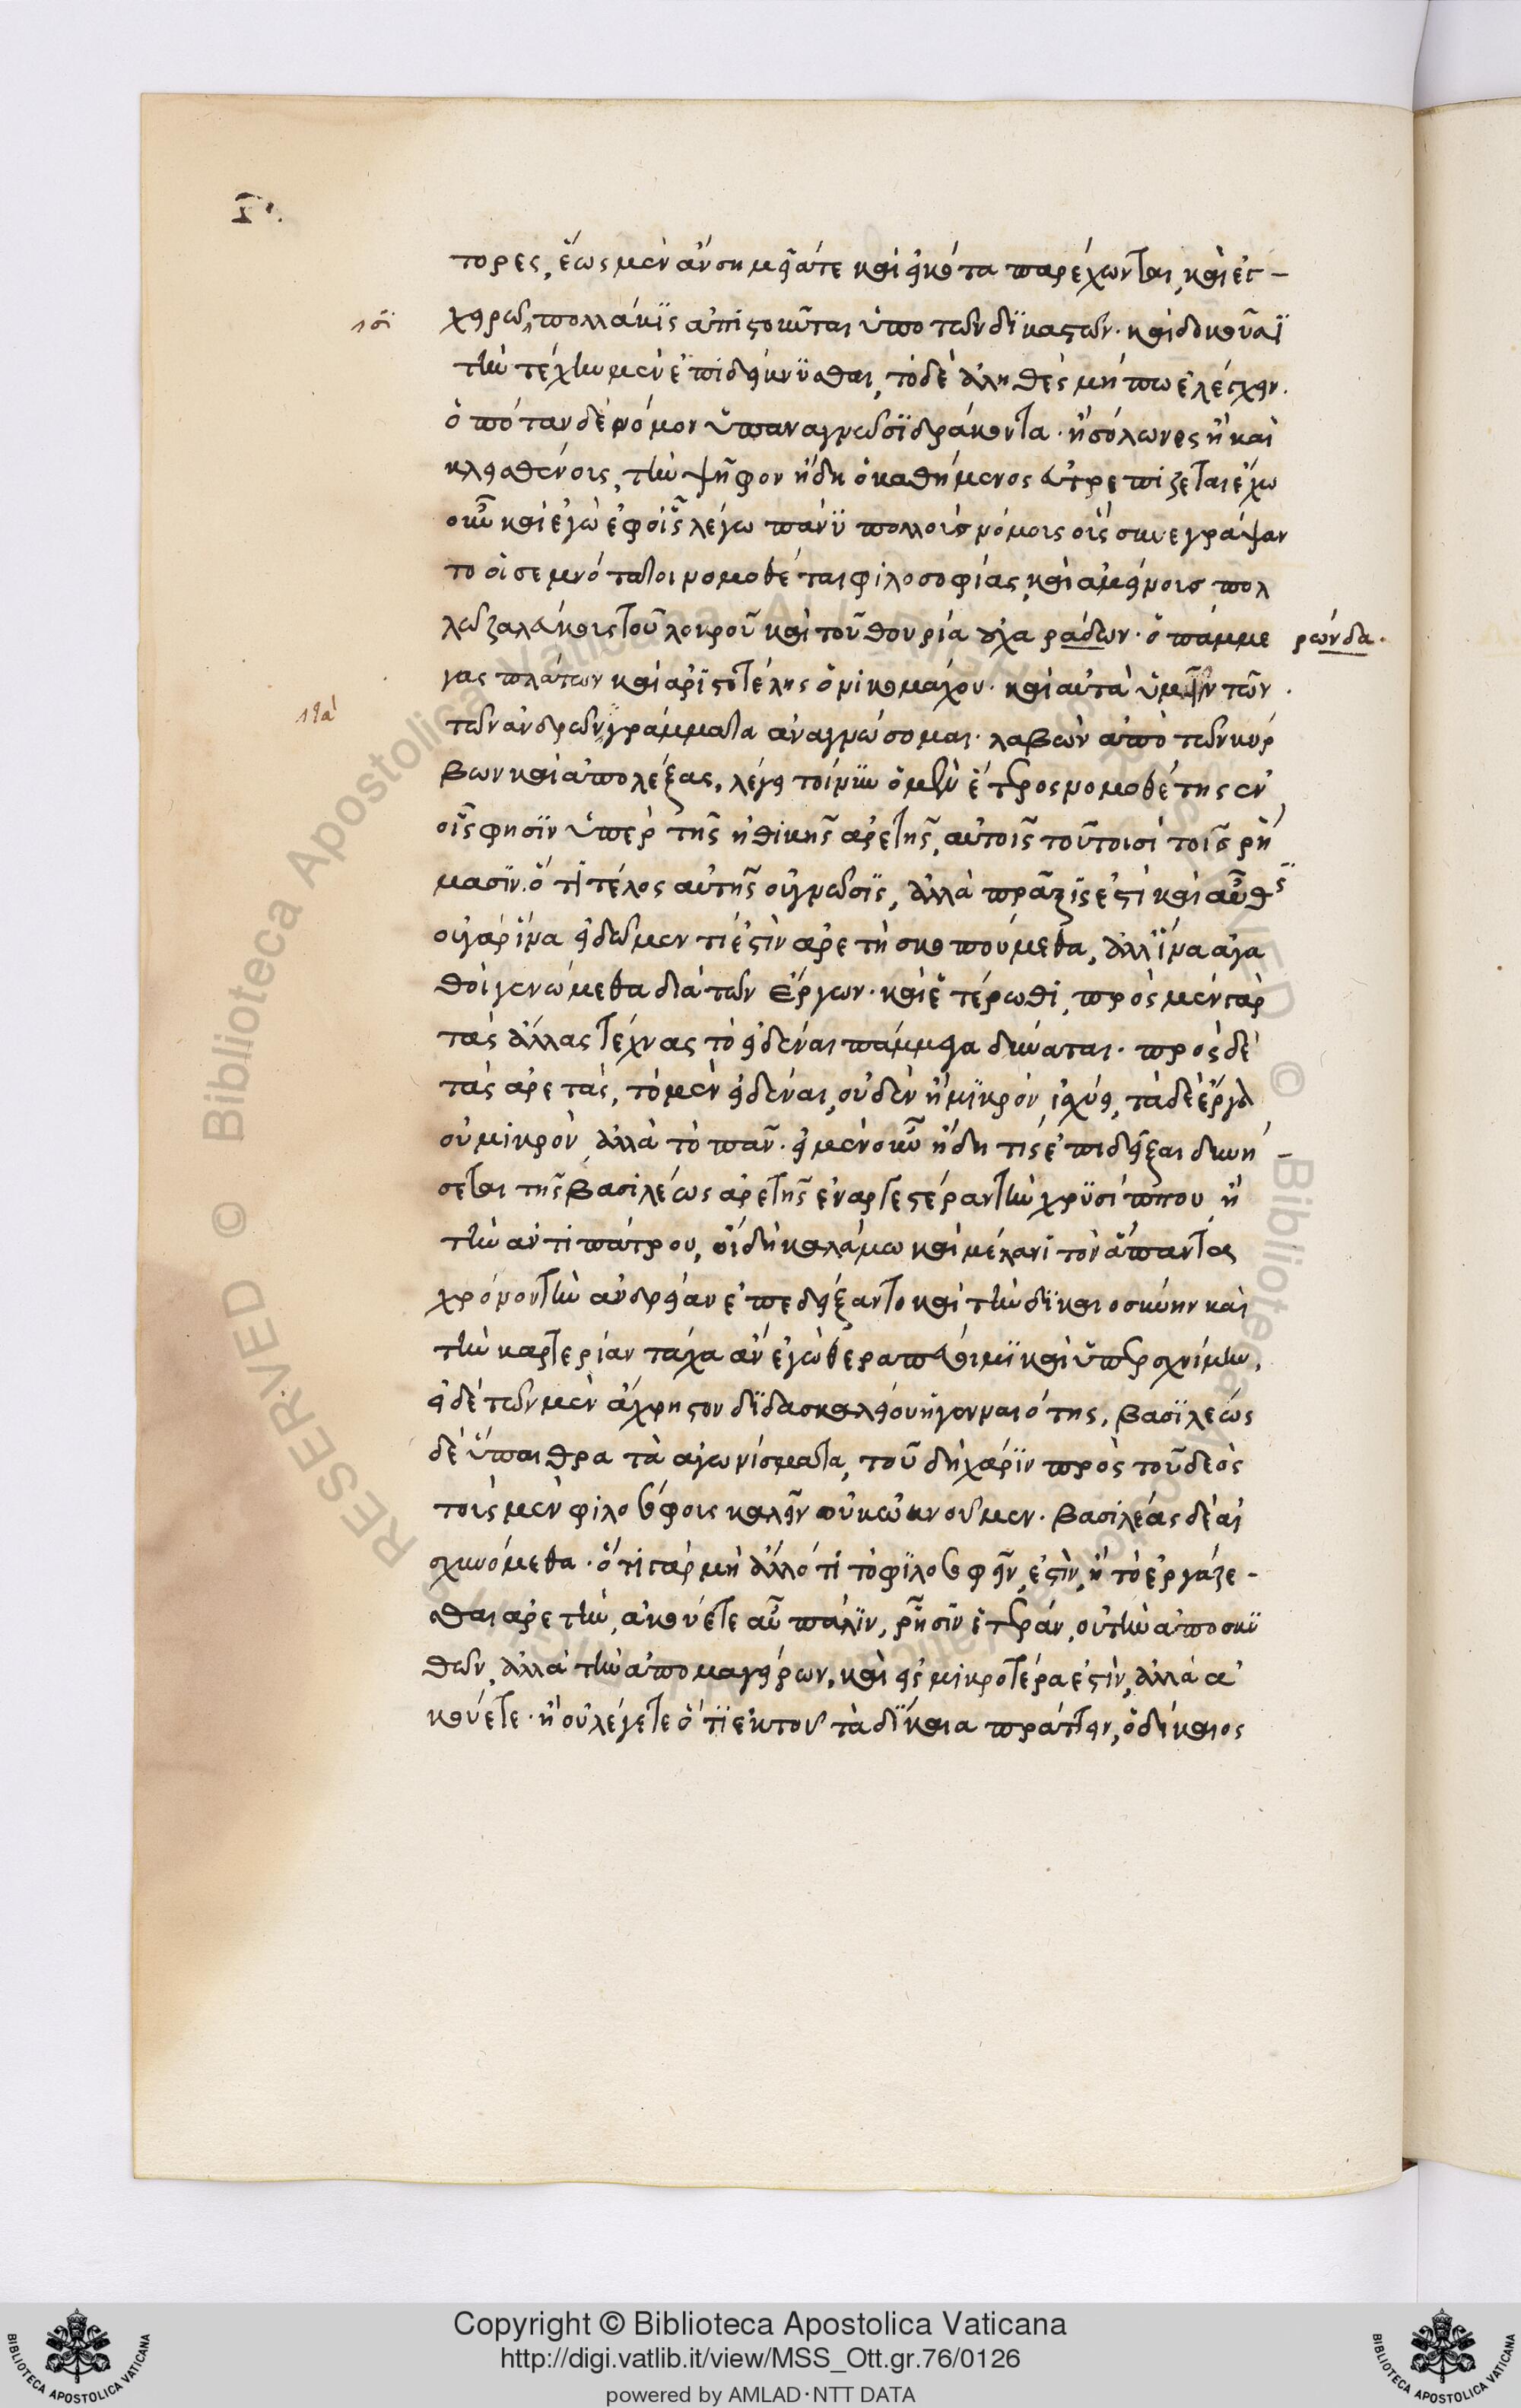 τορες, ἕως μὲν ἂν σημεῖά τε καὶ εἰκότα παρέχωνται, καὶ ἐγ-
χειρῶσι πολλάκις ἀπιστοῦνται ὑπὸ τῶν δικαστῶν· καὶ δοκοῦσι
τὴν τέχνην μὲν ἐπιδείκνυσθαι, τὸ δὲ ἀληθὲς μήπω ἐλέγχειν.
ὁπόταν δὲ νόμον ὑπαναγνῶσι δράκοντα· ἢ σόλωνος ἢ καὶ
κλεισθένοις, τὴν ψῆφον ἤδη ὁ καθήμενος εὐτρεπίζεται ἔχω
οὖν καὶ ἐγὼ ἐφ οἷς λέγω πάνυ πολλοὺς νόμοις οἷς συνεγράψαν
το οἱ σεμνότατοι νομοθέται φιλοσοφίας, καὶ ἀμείνοις πολ
λῶ ζαλεύκοις τοῦ λοκροῦ καὶ τοῦ θουρία χαράδων· ὁ πάμμε
ρώνδα·
γας πλάτων καὶ ἀριστοτέλης ὁ νικομάχου· καὶ αὐτὰ ὑμῖν τῶν
τῶν ἀνδρῶν γράμματα ἀναγνώσομαι· λαβὼν ἀπὸ τῶν κύρ
βων καὶ ἀπολέξας, λέγει τοίνυν ὁ μὲν ἕτερος νομοθέτης ἐν
οἷς φησιν ὑπὲρ τῆς ἠθικῆς ἀρετῆς, αὐτοῖς τούτοισὶ τοῖς ῥή
μασιν. ὅτι τέλος αὐτῆς οὐ γνῶσις, ἀλλὰ πρᾶξις ἐστὶ καὶ αὖθις
οὐ γὰρ ἵνα εἰδῶμεν τί ἐστὶν ἀρετὴ σκοπούμεθα, ἀλλ ἵνα ἀγα
θοὶ γενώμεθα διὰ τῶν ἔργων· καὶ ἑτέρωθι, πρὸς μὲν γὰρ
τὰς ἄλλας τέχνας τὸ εἰδέναι πάμμεγα δύναται· πρὸς δὲ
τὰς ἀρετάς, τὸ μὲν εἰδέναι, οὐδὲν ἢ μικρὸν ἰσχύει, τὰ δὲ ἔργα
οὐ μικρὸν ἀλλὰ τὸ πᾶν· εἰ μὲν οὖν ἤδη τίς ἐπιδεῖξαι δυνή-
σεται τῆς βασιλέως ἀρετῆς ἐναργεστέραν τὴν χρυσίππου ἢ
τὴν ἀντιπάτρου, οἳ δὴ καλάμω καὶ μέλανι τὸν ἅπαντας
χρόνον τὴν ἀνδρείαν ἐπεδείξαντο καὶ τὴν δικαιοσύνην καὶ
τὴν καρτερίαν τάχα ἂν ἐγὼ θεραπεύοιμι καὶ ὑπεροχνίμην,
εἰ δὲ τῶν μὲν ἄχρηστον διδασκαλείου ἡ γενναιότης, βασιλέως
δὲ ὕπαιθρα τὰ ἀγωνίσματα, τοῦ δὴ χάριν πρὸς τοῦ δεὸς
τοὺς μὲν φιλοσόφοις καλεῖν οὐκ ὀκνοῦμεν· βασιλέας δὲ αἰ
σχυνόμεθα· ὅτι γὰρ μὴ ἄλλό τι τὸ φιλοσοφεῖν, ἐστὶν, ἢ τὸ ἐργάζε-
σθαι ἀρετὴν, ἀκούετε αὖ πάλιν, ῥῆσιν ἑτέραν, οὐ τὴν ἀπὸ σκυ
θῶν, ἀλλὰ τὴν ἀπὸ μαγείρων, καὶ εἰς μικροτέρα ἐστὶν, ἀλλὰ ἀ
κούετε· ἢ οὐ λέγετε ὅτι ἐκ τοῦ τὰ δίκαια πράττειν, ὁ δίκαιος
Copyright © Biblioteca Apostolica Vaticana
http://digi.vatlib.it/view/MSS_Ott.gr.76/0126
powered by AMLAD·NTT DATA